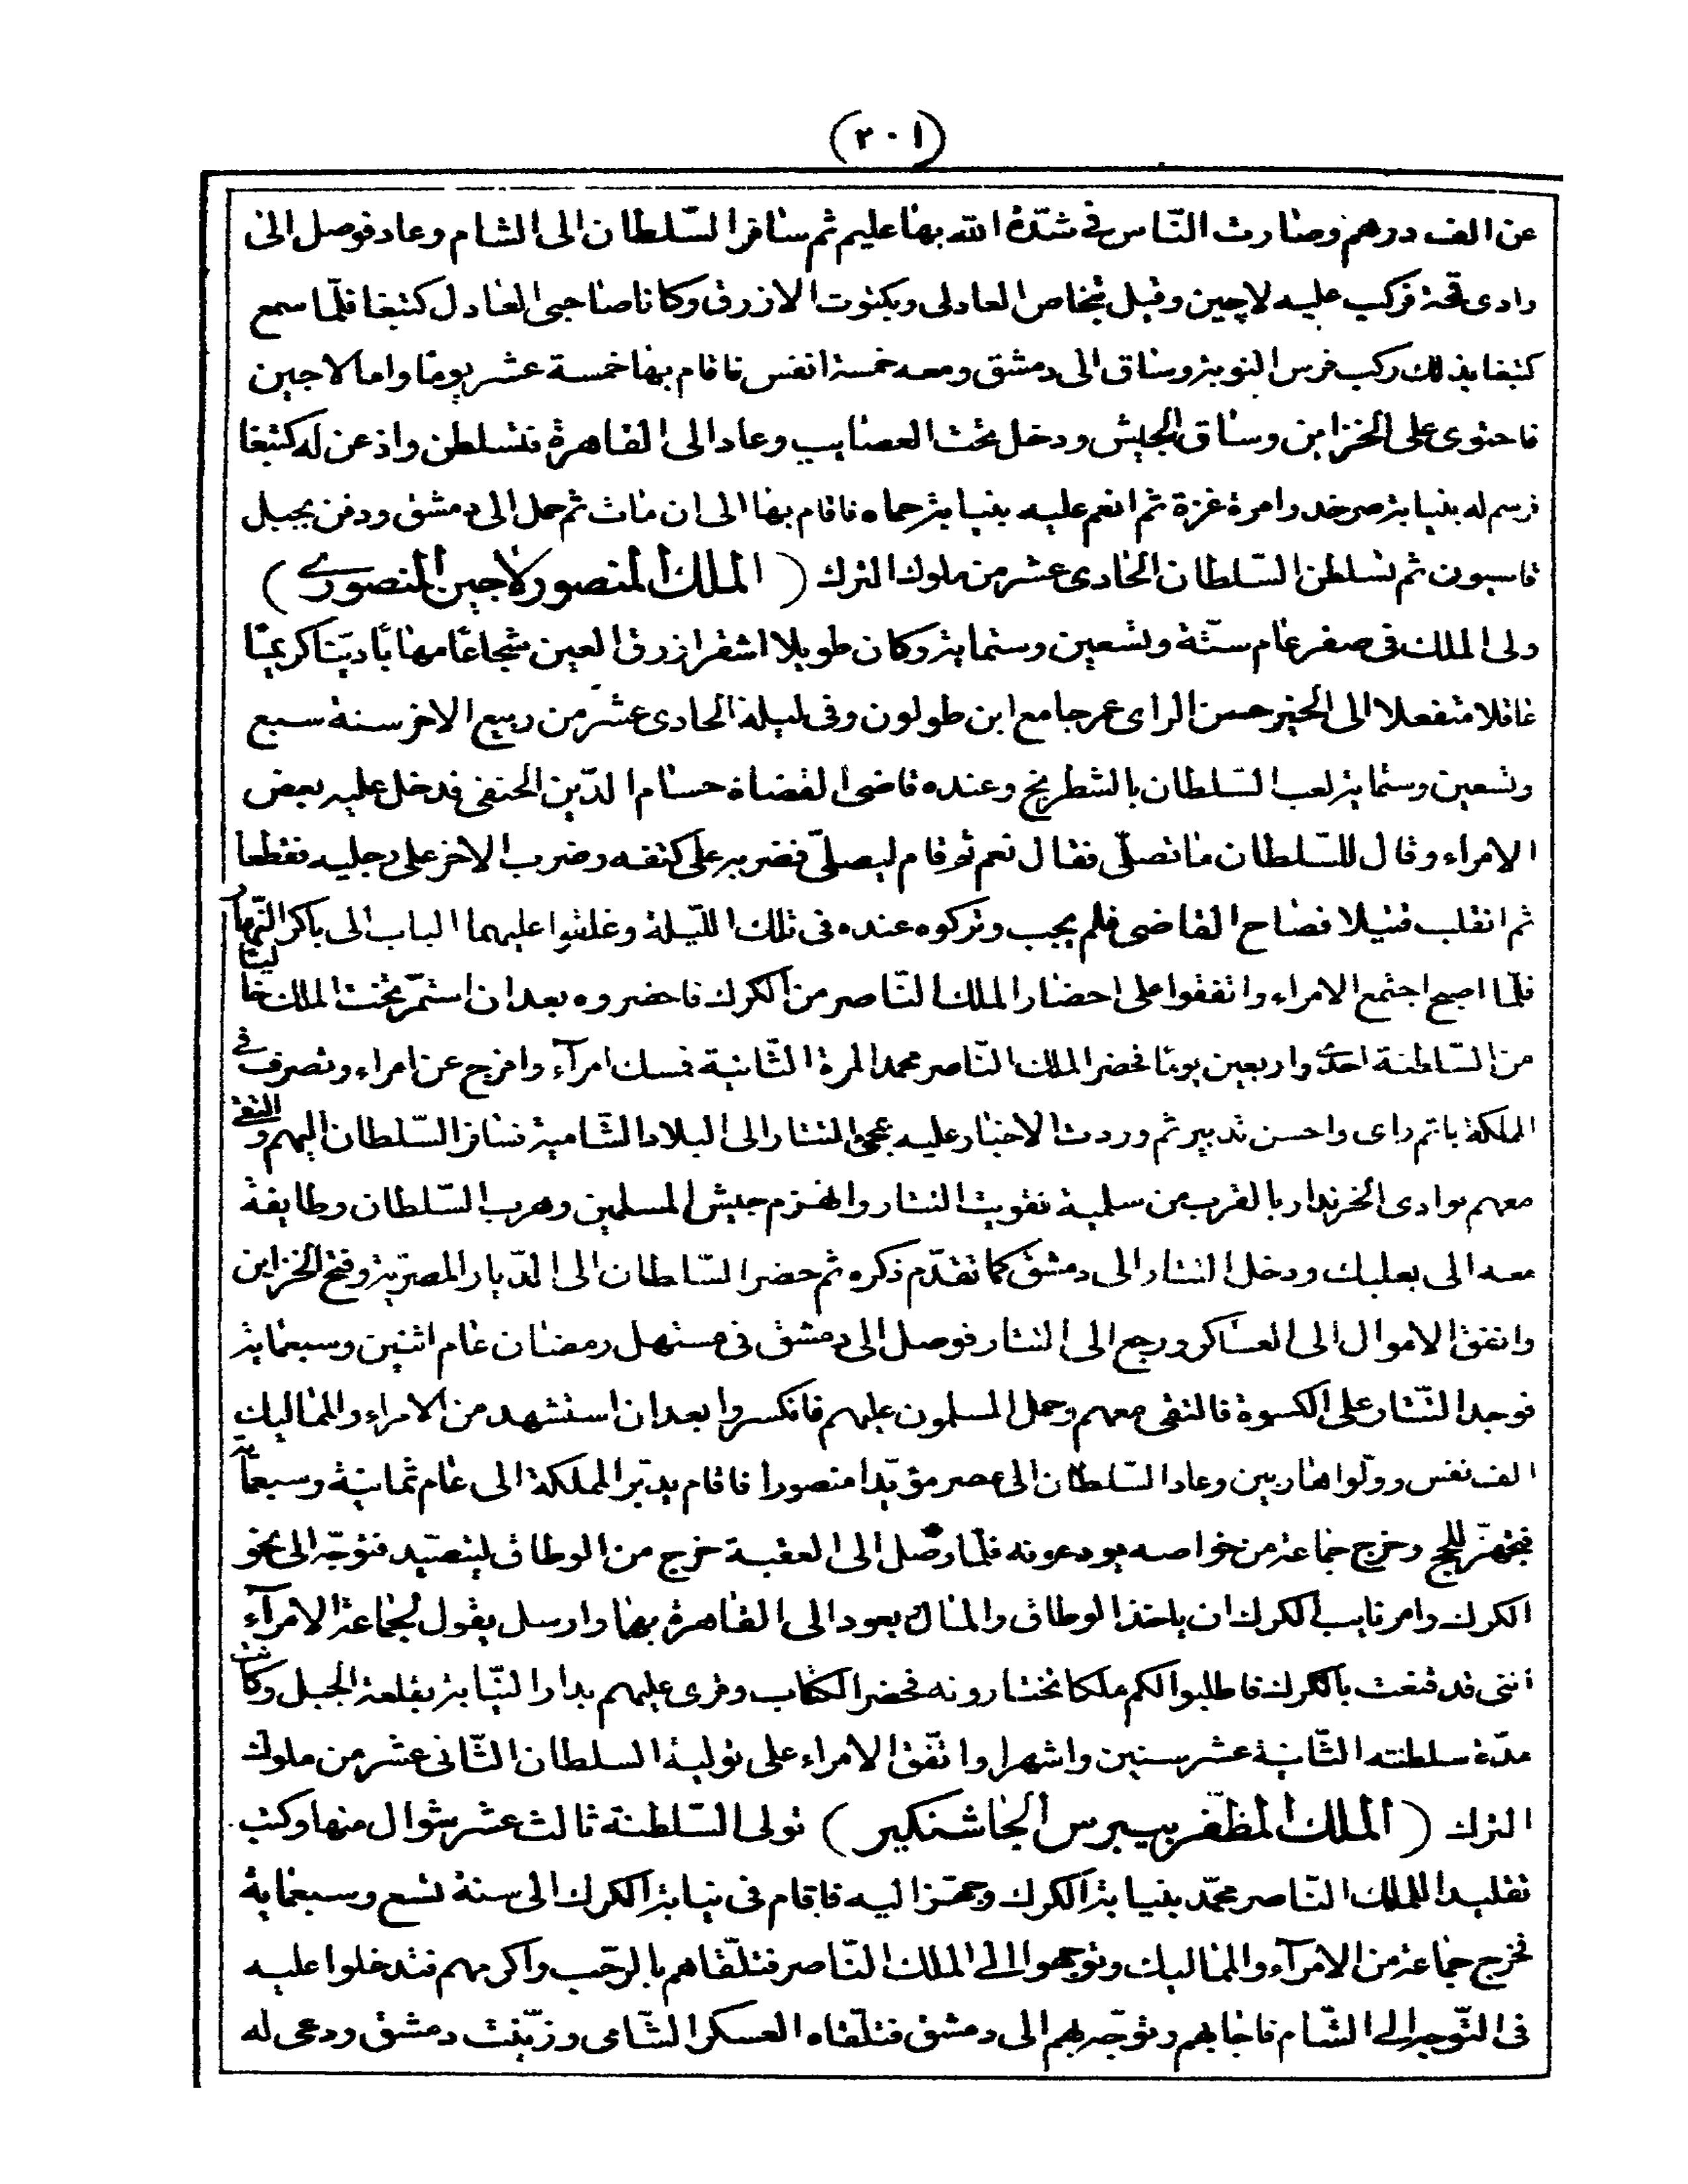 (٢٠١)
عن الف درهم وصارت النّاس فى شدّة الله بها عليم ثم سافر السّلطان الى الشام وعاد فوصل الى
وادى فحمة فركب عليه لاچين وقبل بخاص العادلى وبكتوت الازرق وكانا صاحبى العادل كتبغا فلمّا سمع
كتبغا بذلك ركب فرس النوبة وساق الى دمشق ومعه خمسة انفس فاقام بها خمسة عشر يومًا واما لاجين
فاحتوى على الخزاين وساق الجيش ودخل تحت العصايب وعاد الى القاهرة فتسلطن واذعن له كتبغا
فرسم له بنيابة صرخد وامرة غزة ثم انعم عليه بنيابة حماه فاقام بها الى ان مات ثم حمل الى دمشق ودفن بجبل
قاسيون ثم تسلطن السّلطان الحادى عشر من ملوك الترك (الملك المنصور لاجين المنصورى)
ولى الملك فى صفر عام ستّة وتسعين وستماية وكان طويلا اشقر ازرق العين شجاعًا مهابًا ديّنا كريمًا
عاقلا متفعلا الى الخير حسن الراى عمر جامع ابن طولون وفى ليلة الحادى عشر من ربيع الاخر سنة سبع
وتسعين وستماية لعب السّلطان بالشطرنج وعنده قاضى القضاة حسام الدّين الحنفى فدخل عليه بعض
الامراء وقال للسّلطان ما تصلّى فقال نعم ثم قام ليصلّى فضربه على كتفه وضرب الاخر على رجليه فقطعا
ثم انقلب قتيلا فصاح القاضى فلم يجب وتركوه عنده فى تلك اللّيلة وغلقوا عليهما الباب الى باكر النّهار
فلمّا اصبح اجتمع الامراء واتفقوا على احضار الملك النّاصر من الكرك فاحضروه بعد ان استمرّ تخت الملك خاليًا
من السّلطنة احدى واربعين يومًا فحضر الملك النّاصر محمد المرة الثّانية فمسك امرآء وافرج عن امراء وتصرف فى
المملكة باتم راى واحسن تدبير ثم وردت الاخبار عليه بمجئ التتار الى البلاد الشّامية فسافر السّلطان اليهم والتقى
معهم بوادى الخزندار بالقرب من سلمية فقويت التتار وانهزم جيش المسلمين وهرب السّلطان وطايفة
معه الى بعلبك ودخل التتار الى دمشق كما تقدّم ذكره ثم حضر السّلطان الى الدّيار المصريّة وفتح الخزاين
وانفق الاموال الى العساكر ورجع الى التتار فوصل الى دمشق فى مستهل رمضان عام اثنين وسبعماية
فوجد التّتار على الكسوة فالتقى معهم وحمل المسلمون عليهم فانكسروا بعد ان استشهد من الامراء والمماليك
الف نفس وولّوا هاربين وعاد السّلطان الى مصر مؤيّدا منصورا فاقام يدبّر المملكة الى عام ثمانية وسبعماية
فتجهّز للحج وخرج جماعة من خواصه يودعونه فلمّا وصل الى العقبة خرج من الوطاق ليتصيّد فتوجّه الى نحو
الكرك وامر نايب الكرك ان ياخذ الوطاق والمال يعود الى القاهرة بها وارسل يقول لجماعة الامرآء
اننى قد قنعت بالكرك فاطلبوا لكم ملكا تختارونه فحضر الكتاب وقرى عليهم بدار النّيابة بقلعة الجبل وكانت
مدّة سلطنته الثّانية عشر سنين واشهرا واتّفق الامراء على تولية السلطان الثّانى عشر من ملوك
الترك (الملك المظفّر بيبرس الجاشنكير) تولى السّلطنة ثالث عشر شوال منها وكتب
تقليدا للملك النّاصر محمّد بنيابة الكرك وجهّز اليه فاقام فى نيابة الكرك الى سنة تسع وسبعماية
فخرج جماعة من الامرآء والمماليك وتوجهوا الى الملك النّاصر فتلقّاهم بالرحّب واكرمهم فتدخلوا عليه
فى التّوجه الى الشّام فاجابهم وتوجّه بهم الى دمشق فتلقّاه العسكر الشّامى وزيّنت دمشق ودعى له